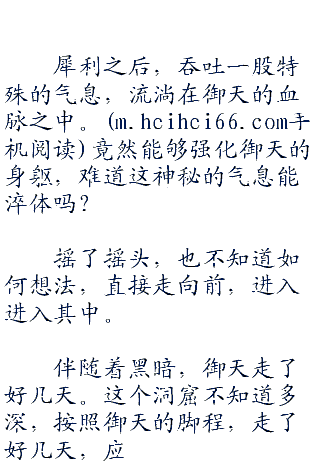 犀利之后，吞吐一股特
殊的气息，流淌在御天的血
脉之中。(m.hcihci66.com手
机阅读)竟然能够强化御天的
身躯，难道这神秘的气息能
淬体吗？
摇了摇头，也不知道如
何想法，直接走向前，进入
进入其中。
伴随着黑暗，御天走了
好几天。这个洞窟不知道多
深，按照御天的脚程，走了
好几天，应